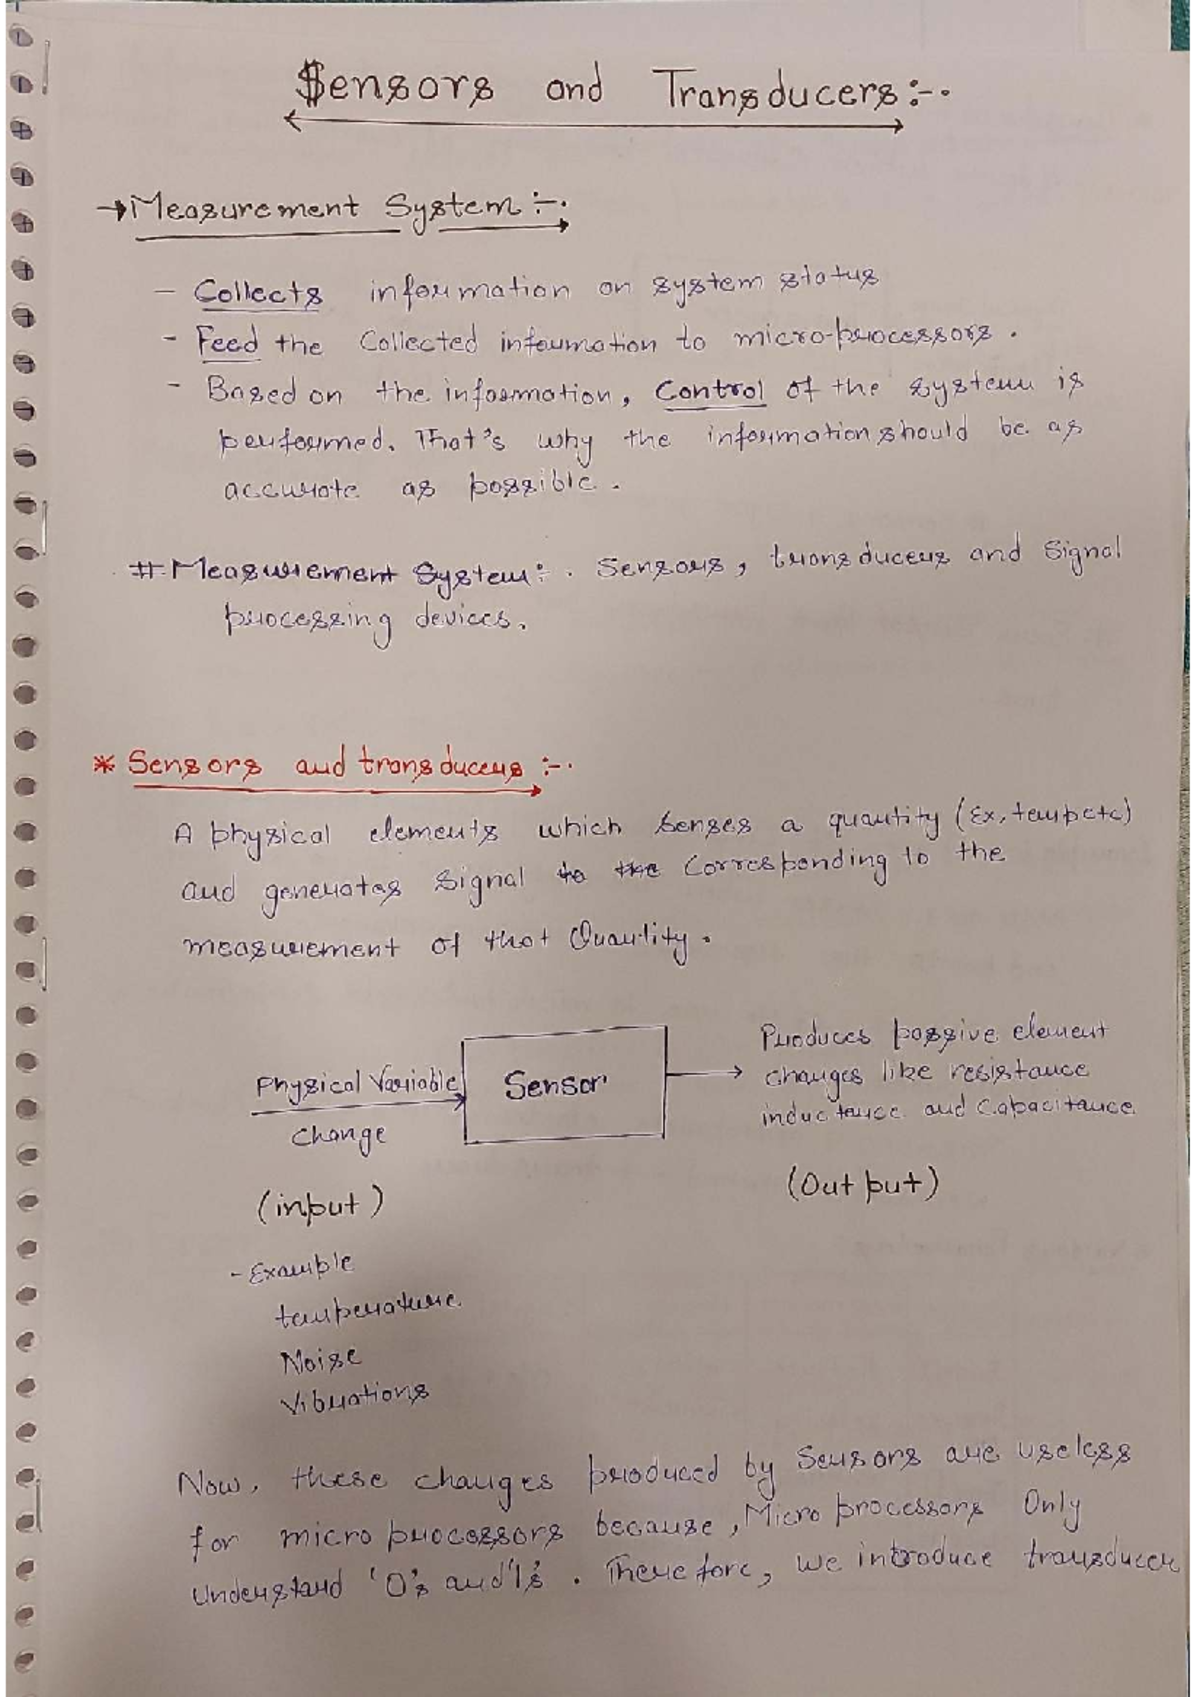 Sensors and Transducers :-.
→ Measurement System :-.
- Collects information on system status
- Feed the Collected information to micro-processors.
- Based on the information, Control of the system is
performed. That's why the information should be as
accurate as possible.
# Measurement System :. Sensors, transducers and Signal
processing devices.
* Sensors and transducers :-.
A physical elements which senses a quantity (Ex, temp etc)
and generates signal to the Corresponding to the
measurement of that Quantity.
Physical Variable
Change
Sensor
Produces passive element
changes like resistance
inductance and Capacitance
(input)
(Output)
- Example
temperature
Noise
Vibrations
Now, these changes produced by Sensors are useless
for micro processors because, Micro processors Only
Understand '0's and '1's. Therefore, we introduce transducer